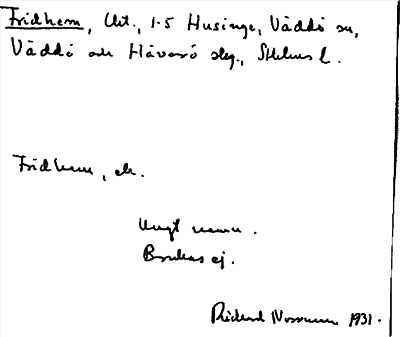 Fridhem, lht., 1-5 Husinge, Väddö sn,
Väddö och Häverö slg., Sthlms l.
Fridhem, lh.
Ungt namn.
Brukas ej.
1931.